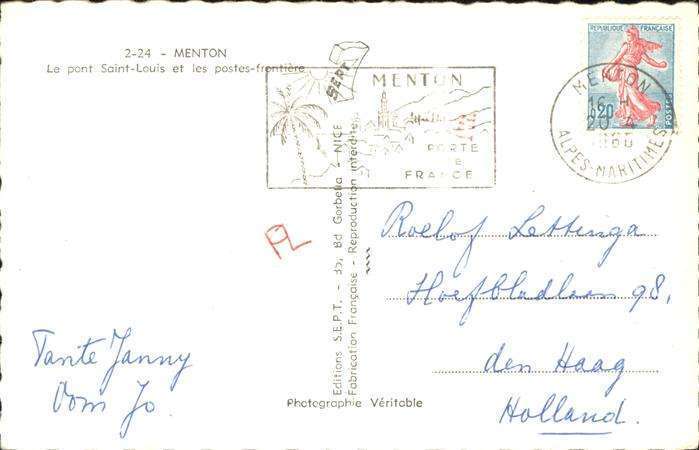 2-24 - MENTON
Le pont Saint-Louis et les postes-frontière
SEPT
MENTON
PORTE
FRANCE
REPUBLIQUE FRANÇAISE
0,20
POSTES
MENTON
16 H
ALPES-MARITIMES
PL
Editions S.E.P.T. - Bd Gorbella - NICE
Fabrication Française - Reproduction interdite
Roelof Lettinga
Hoefbladlaan 98,
den Haag
Holland.
Tante Janny
Oom Jo.
Photographie Véritable